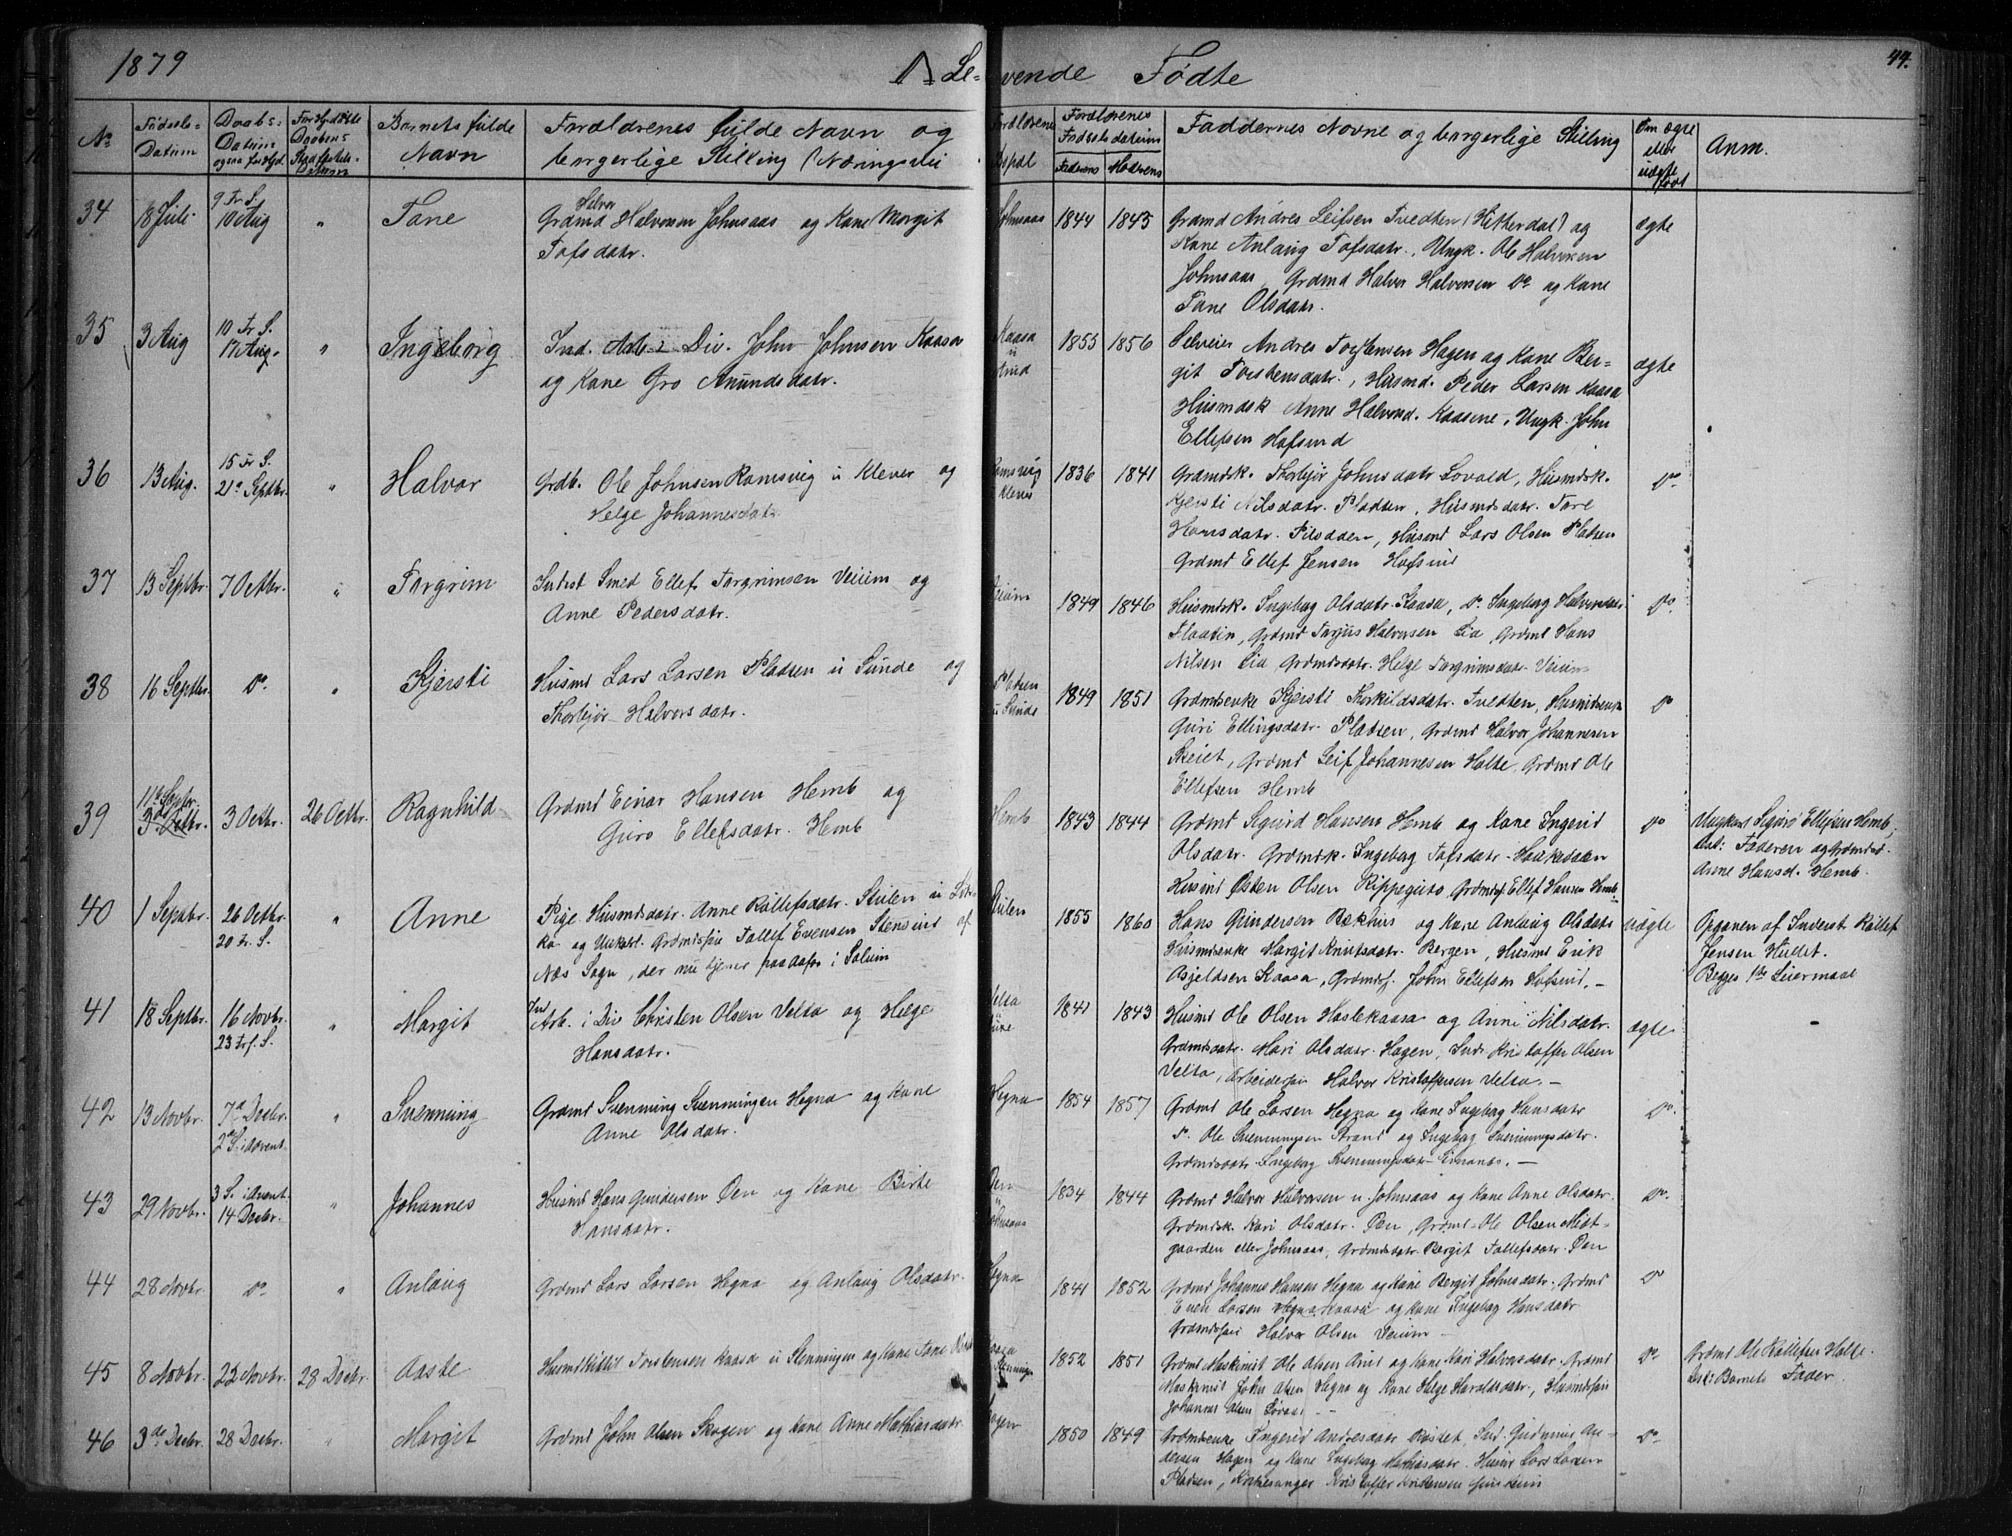 1879
A. Levende Fødte
44.
No
Fødsels-
Datum
Daabs-
Datum
Barnets fulde
Navn
Forældrenes fulde Navn og
borgerlige Stilling (Næringsvei
Forældrenes
Fødselsdatum
Faderens
Moderens
Faddernes Navne og borgerlige Stilling
Om ægte
eller
uægte
født
Anm.
34
18 Juli
9 Tr. S.
10 Aug
"
Tone
Halvor
Grdmd Halvorsen Johnsaas og Kone Margit
Tofsdatr.
Johnsaas
1844
1843
Grdmd Andres Leifsen Tvedten (Hitterdal) og
Kone Anlaug Tofsdatr., Ungk. Ole Halvorsen
Johnsaas, Grdmd Halvor Halvorsen Do og Kone
Tone Olsdatr.
ægte
35
3 Aug
10 Tr. S.
17 Aug.
"
Ingeborg
Ind. Arb. i Div. John Johnsen Kaasa
og Kone Gro Amundsdatr.
Kaasa
1855
1856
Selveier Andres Torstensen Hagen og Kone Ber-
git Torstensdatr., Husmd. Peder Larsen Kaasa
Husmdsk Anne Halvorsd. Kaasene, Ungk. John
Ellefsen Hofsund
ægte
36
13 Aug.
15 Tr. S.
21de Septbr.
"
Halvor
Grdb. Ole Johnsen Ramsvig u Klever og
Helge Johannesdatr.
Ramsvig
Klever
1836
1841
Grdmdsk. Thorbjør Johnsdatr Lovald, Husmdsk.
Kjersti Nilsdatr. Pladsen, Husmdsdatr. Tore
Hansdatr. Pilodden, Husmd Lars Olsen Pladsen
Grdmd Ellef Jensen Hofsund
Do
37
13 Septbr.
7 Octbr.
"
Torgrim
Inderst Smed Ellef Torgrimsen Veium og
Anne Pedersdatr.
Veium
1849
1846
Husmdsk. Ingeborg Olsdatr. Kaasa, Do Ingeborg Halvorsdatr
Flaatin, Grdmd Torjus Halvorsen Lia, Grdmd Hans
Nilsen Lia Grdmdsdatr. Helge Torgrimsdatr. Veium
Do
38
16 Septbr.
Do
"
Kjersti
Husmd Lars Larsen Pladsen u Sunde og
Thorbjør Halvorsdatr.
Pladsen
u Sunde
1849
1851
Grdmdsenke Kjersti Thorkildsdatr. Tvedten, Husmdsenke
Guri Ellingsdatr. Pladsen, Grdmd Halvor Johannesen
Skeiet, Grdmd Leif Johannesen Holte, Grdmd Ole
Ellefsen Hemb
Do
39
11te Septbr.
3die Octbr.
3 Octbr.
26 Octbr.
Ragnhild
Grdmd Einar Hansen Hemb og
Guro Ellefsdatr. Hemb
Hemb
1843
1844
Grdmd Sigurd Hansen Hemb og Kone Ingerid
Olsdatr. Grdmdsk. Ingeborg Tofsdatr. Haukedalen
Husmd Østen Olsen Rippeguto, Grdmdsf. Ellef Hansen Hemb
Do
Ungkarl Sigurd Ellefsen Hemb,
Faderen og Grdmdsd.
Anne Hansd. Hemb.
40
1 Septbr.
26 Octbr.
20 Tr. S.
"
Anne
Pige Husmdsdatr. Anne Rollefsdatr. Stulen
og Ungkarl. Grdmdssøn Tollef Evensen Stensrud af
Næs Sogn, der nu tjener paa Aafos i Solum
Stulen
1855
1860
Hans Gundersen Bækhus og Kone Anlaug Olsdatr
Husmdsenke Margit Knutsdatr. Bergen, Husmd Erik
Asjeldsen Kaasa, Grdmdsf. John Ellefsen Hofsund.
uægte
Opgaven af Inderst Rollef
Jensen Hullet.
Begges 1ste Leiermaal
41
18 Septbr.
16 Novbr.
23 Tr. S.
"
Margit
Ind
Arb. i Div Christen Olsen Velta og Helge
Hansdatr.
Velta
1841
1843
Husmd Ole Olsen Haslekaasa og Anne Nilsdatr.
Grdmdsdatr. Mari Olsdatr. Hagen, Ind. Kristoffer Olsen
Velta, Arbeidersøn Halvor Kristoffersen Velta.
ægte
42
13 Novbr.
7de Decbr.
2 S. i Advent.
"
Svenning
Grdmd Svenning Svenningsen Hegna og Kone
Anne Olsdatr.
Hegna
1854
1857
Grdmd Ole Larsen Hegna og Kone Ingeborg Hansdatr
Do Ole Svenningsen Strand og Ingeborg Svenningsdatr.
Grdmdsdatr. Ingeborg Svenningsdatr.
Do
43
29 Novbr.
3 S. i Advent.
14 Decbr.
"
Johannes
Husmd Hans Gundersen Øen og Kone Birte
Hansdatr.
Øen
u
Johnsaas
1834
1844
Grdmd Halvor Halvorsen u. Johnsaas og Kone Anne Olsdatr.
Grdmdsk. Kari Olsdatr. Øen, Grdmd Ole Olsen Midt-
gaarden eller Johnsaas, Grdmdsdatr. Bergit Tollefsdatr. Øen
Do
44
28 Novbr.
Do
"
Anlaug
Grdmd Lars Larsen Hegna og Anlaug Olsdatr.
Hegna
1841
1852
Grdmd Johannes Hansen Hegna og Kone Bergit Johnsdatr. Grdmd
Even Larsen Hegna og Kone Ingeborg Hansdatr
Grdmdssøn Halvor Olsen Veium
Do
45
8 Novbr.
22 Novbr.
28 Decbr.
Aaste
Husmd Kittil Torstensen Kaasa u Stenningen og Kone Tone
Kaasa
u Stenningen
1852
1851
Grdmd Maskinist Ole Olsen og Kone Kari Halvorsdatr. Grdmd
Maskinist John Olsen Hegna og Kone Helge Haraldsdatr., Husmdssøn
Johannes Olsen
Do
Grdmd Ole Rollefsen Holte.
Barnets Fader.
46
3de Decbr.
28 Decbr.
"
Margit
Grdmd John Olsen Skogen og Kone Anne Mathiasdatr.
Skogen
1850
1849
Grdmdsenke Ingerid Andresdatr. Ind. Gudmund An-
dersen Hagen og Kone Ingeborg Mathiasdatr. Husmd Lars Larsen
Pladsen, Kirkesanger Kristoffer Kristensen
Do